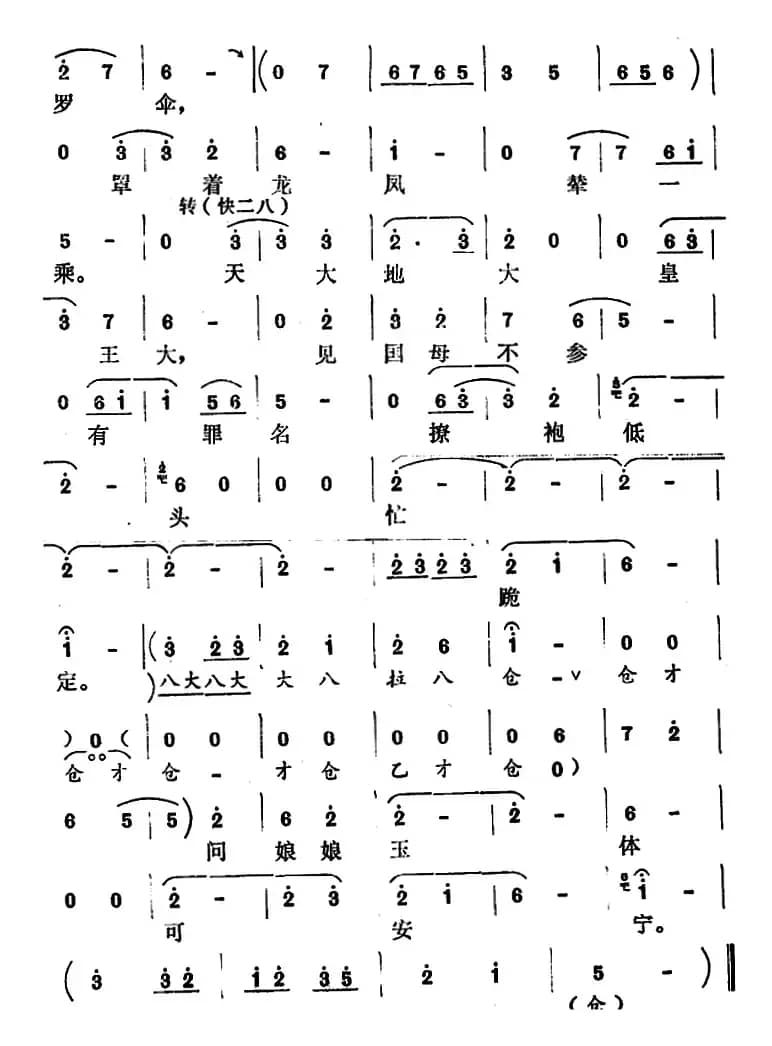 2 7 | 6 - ‖ ( 0 7 | 6 7 6 5 | 3 5 | 6 5 6 )
罗 伞，
0 3 | 3 2 | 6 - | i - | 0 7 | 7 6 i
罩 着 龙 凤 辇 一
转（快二八）
5 - | 0 3 | 3 3 | 2 · 3 | 2 0 | 0 6 3
乘。 天 大 地 大 皇
3 7 | 6 - | 0 2 | 3 2 | 7 6 | 5 -
王 大， 见 国 母 不 参
0 6 i | i 5 6 | 5 - | 0 6 3 | 3 2 | 2 -
有 罪 名 撩 袍 低
2 - | 6 0 | 0 0 | 2 - | 2 - | 2 -
头 忙
2 - | 2 - | 2 - | 2 3 2 3 | 2 i | 6 -
跪
i - ‖ ( 3 2 3 | 2 i | 2 6 | i - | 0 0
定。 ) 八大八大 大 八 拉 八 仓 - ∨ 仓 才
) 0 ( | 0 0 | 0 0 | 0 0 | 0 6 | 7 2
仓 才 仓 - 才 仓 乙 才 仓 0 )
6 5 | 5 ) 2 | 6 2 | 2 - | 2 - | 6 -
问 娘 娘 玉 体
0 0 | 2 - | 2 3 | 2 i | 6 - | i -
可 安 宁。
( 3 3 2 | i 2 3 5 | 2 i | 5 - ) ‖
（仓）